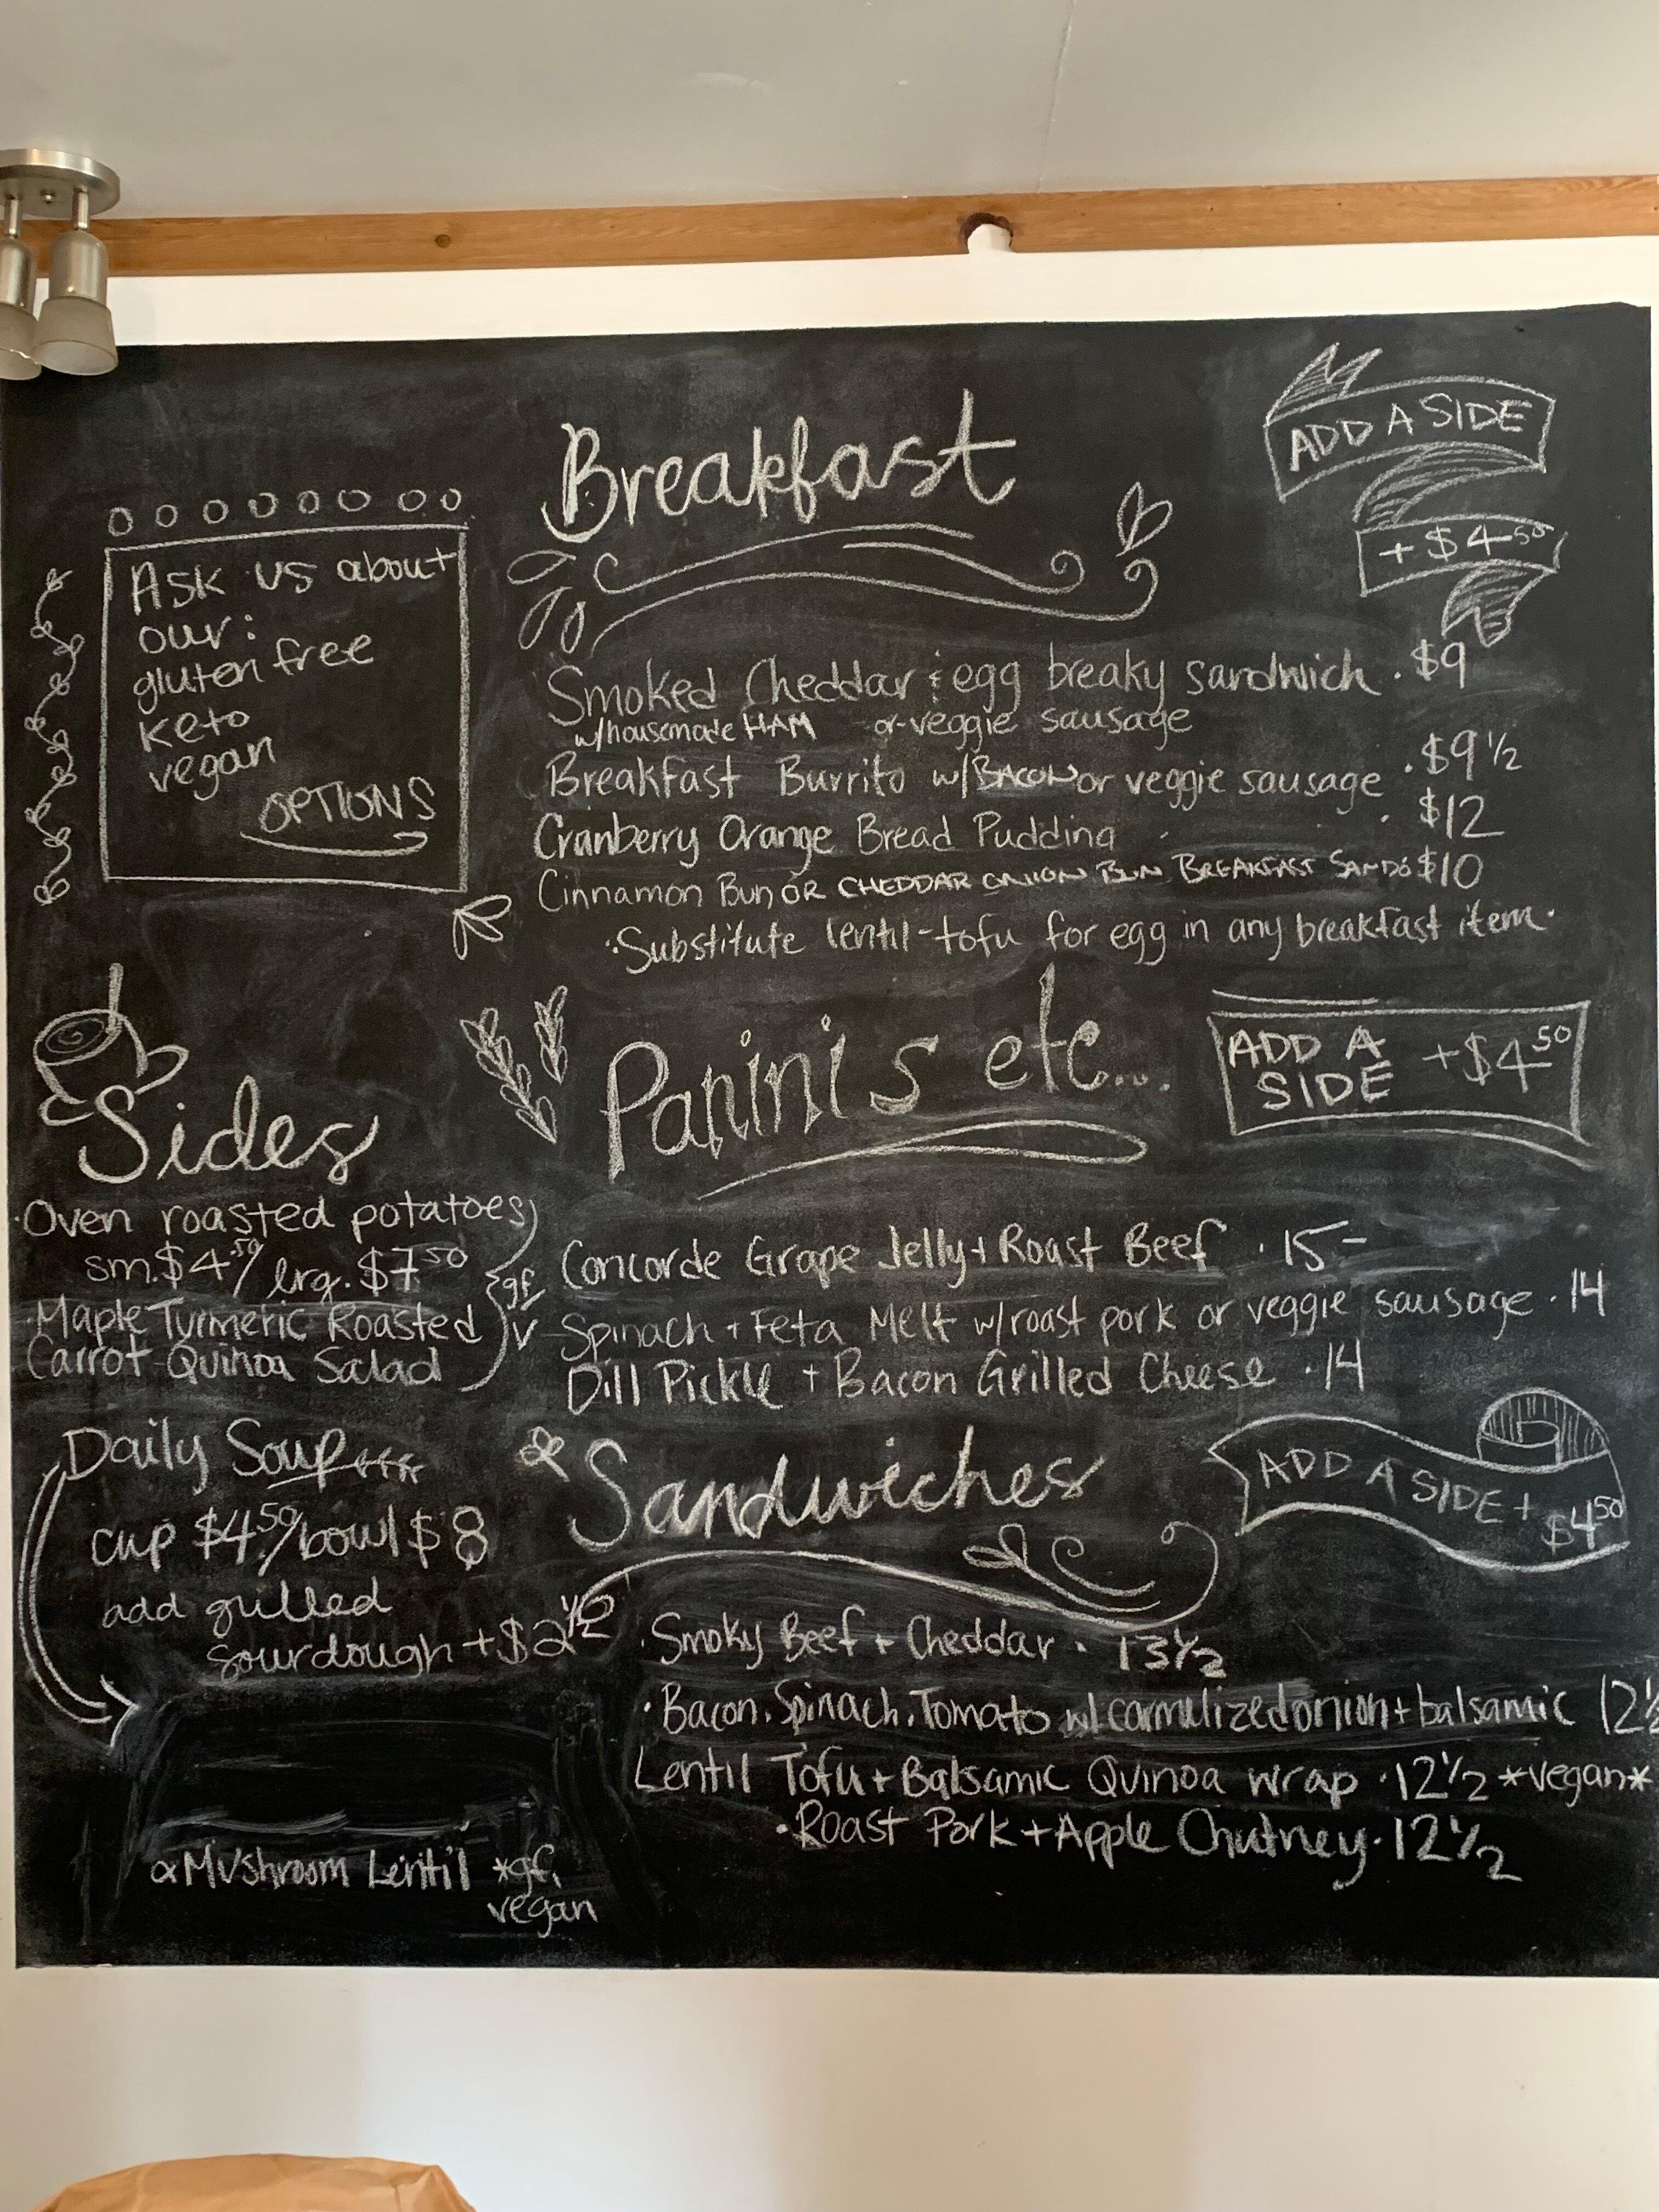 Breakfast
ADD A SIDE
+ $4.50
Ask us about
our:
gluten free
keto
vegan
OPTIONS
Smoked Cheddar & egg breaky sandwich . $9
w/housemade HAM -or- veggie sausage
Breakfast Burrito w/BACON or veggie sausage . $9 1/2
Cranberry Orange Bread Pudding . $12
Cinnamon Bun OR CHEDDAR ONION BUN BREAKFAST SANDO $10
·Substitute lentil-tofu for egg in any breakfast item·
Sides
·Oven roasted potatoes
sm.$4.50/lrg.$7.50
·Maple Turmeric Roasted
Carrot Quinoa Salad
gf
v
Panini's etc...
ADD A
SIDE +$4.50
Concorde Grape Jelly + Roast Beef . 15-
Spinach + Feta Melt w/roast pork or veggie sausage . 14
Dill Pickle + Bacon Grilled Cheese . 14
Daily Soup
cup $4.50/bowl $8
add grilled
sourdough +$2 1/2
Mushroom Lentil *gf,
vegan
Sandwiches
ADD A SIDE + $4.50
·Smoky Beef + Cheddar · 13 1/2
·Bacon, Spinach, Tomato w/ carmulized onion + balsamic 12 1/2
Lentil Tofu + Balsamic Quinoa Wrap · 12 1/2 *vegan*
·Roast Pork + Apple Chutney · 12 1/2